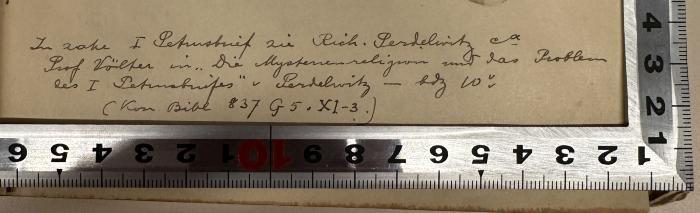 In zake I Petrusbrief zie Rich. Perdelwitz ca
Prof Völter in „Die Mysterienreligion und das Problem
des I Petrusbriefes" v Perdelwitz — bdz 10
(Kon Bibl 837 G 5. XI-3.)
4
3
2
1
6 5 4 3 2 1 10 9 8 7 6 5 4 3 2 1